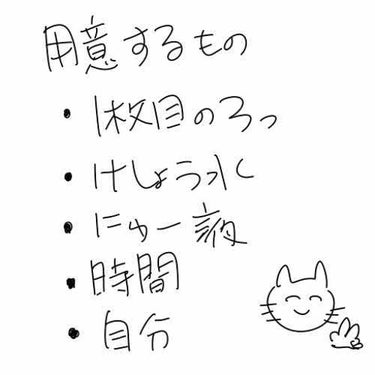 用意するもの
• 1枚目のろっ
• けしょう水
• にゅー液
• 時間
• 自分